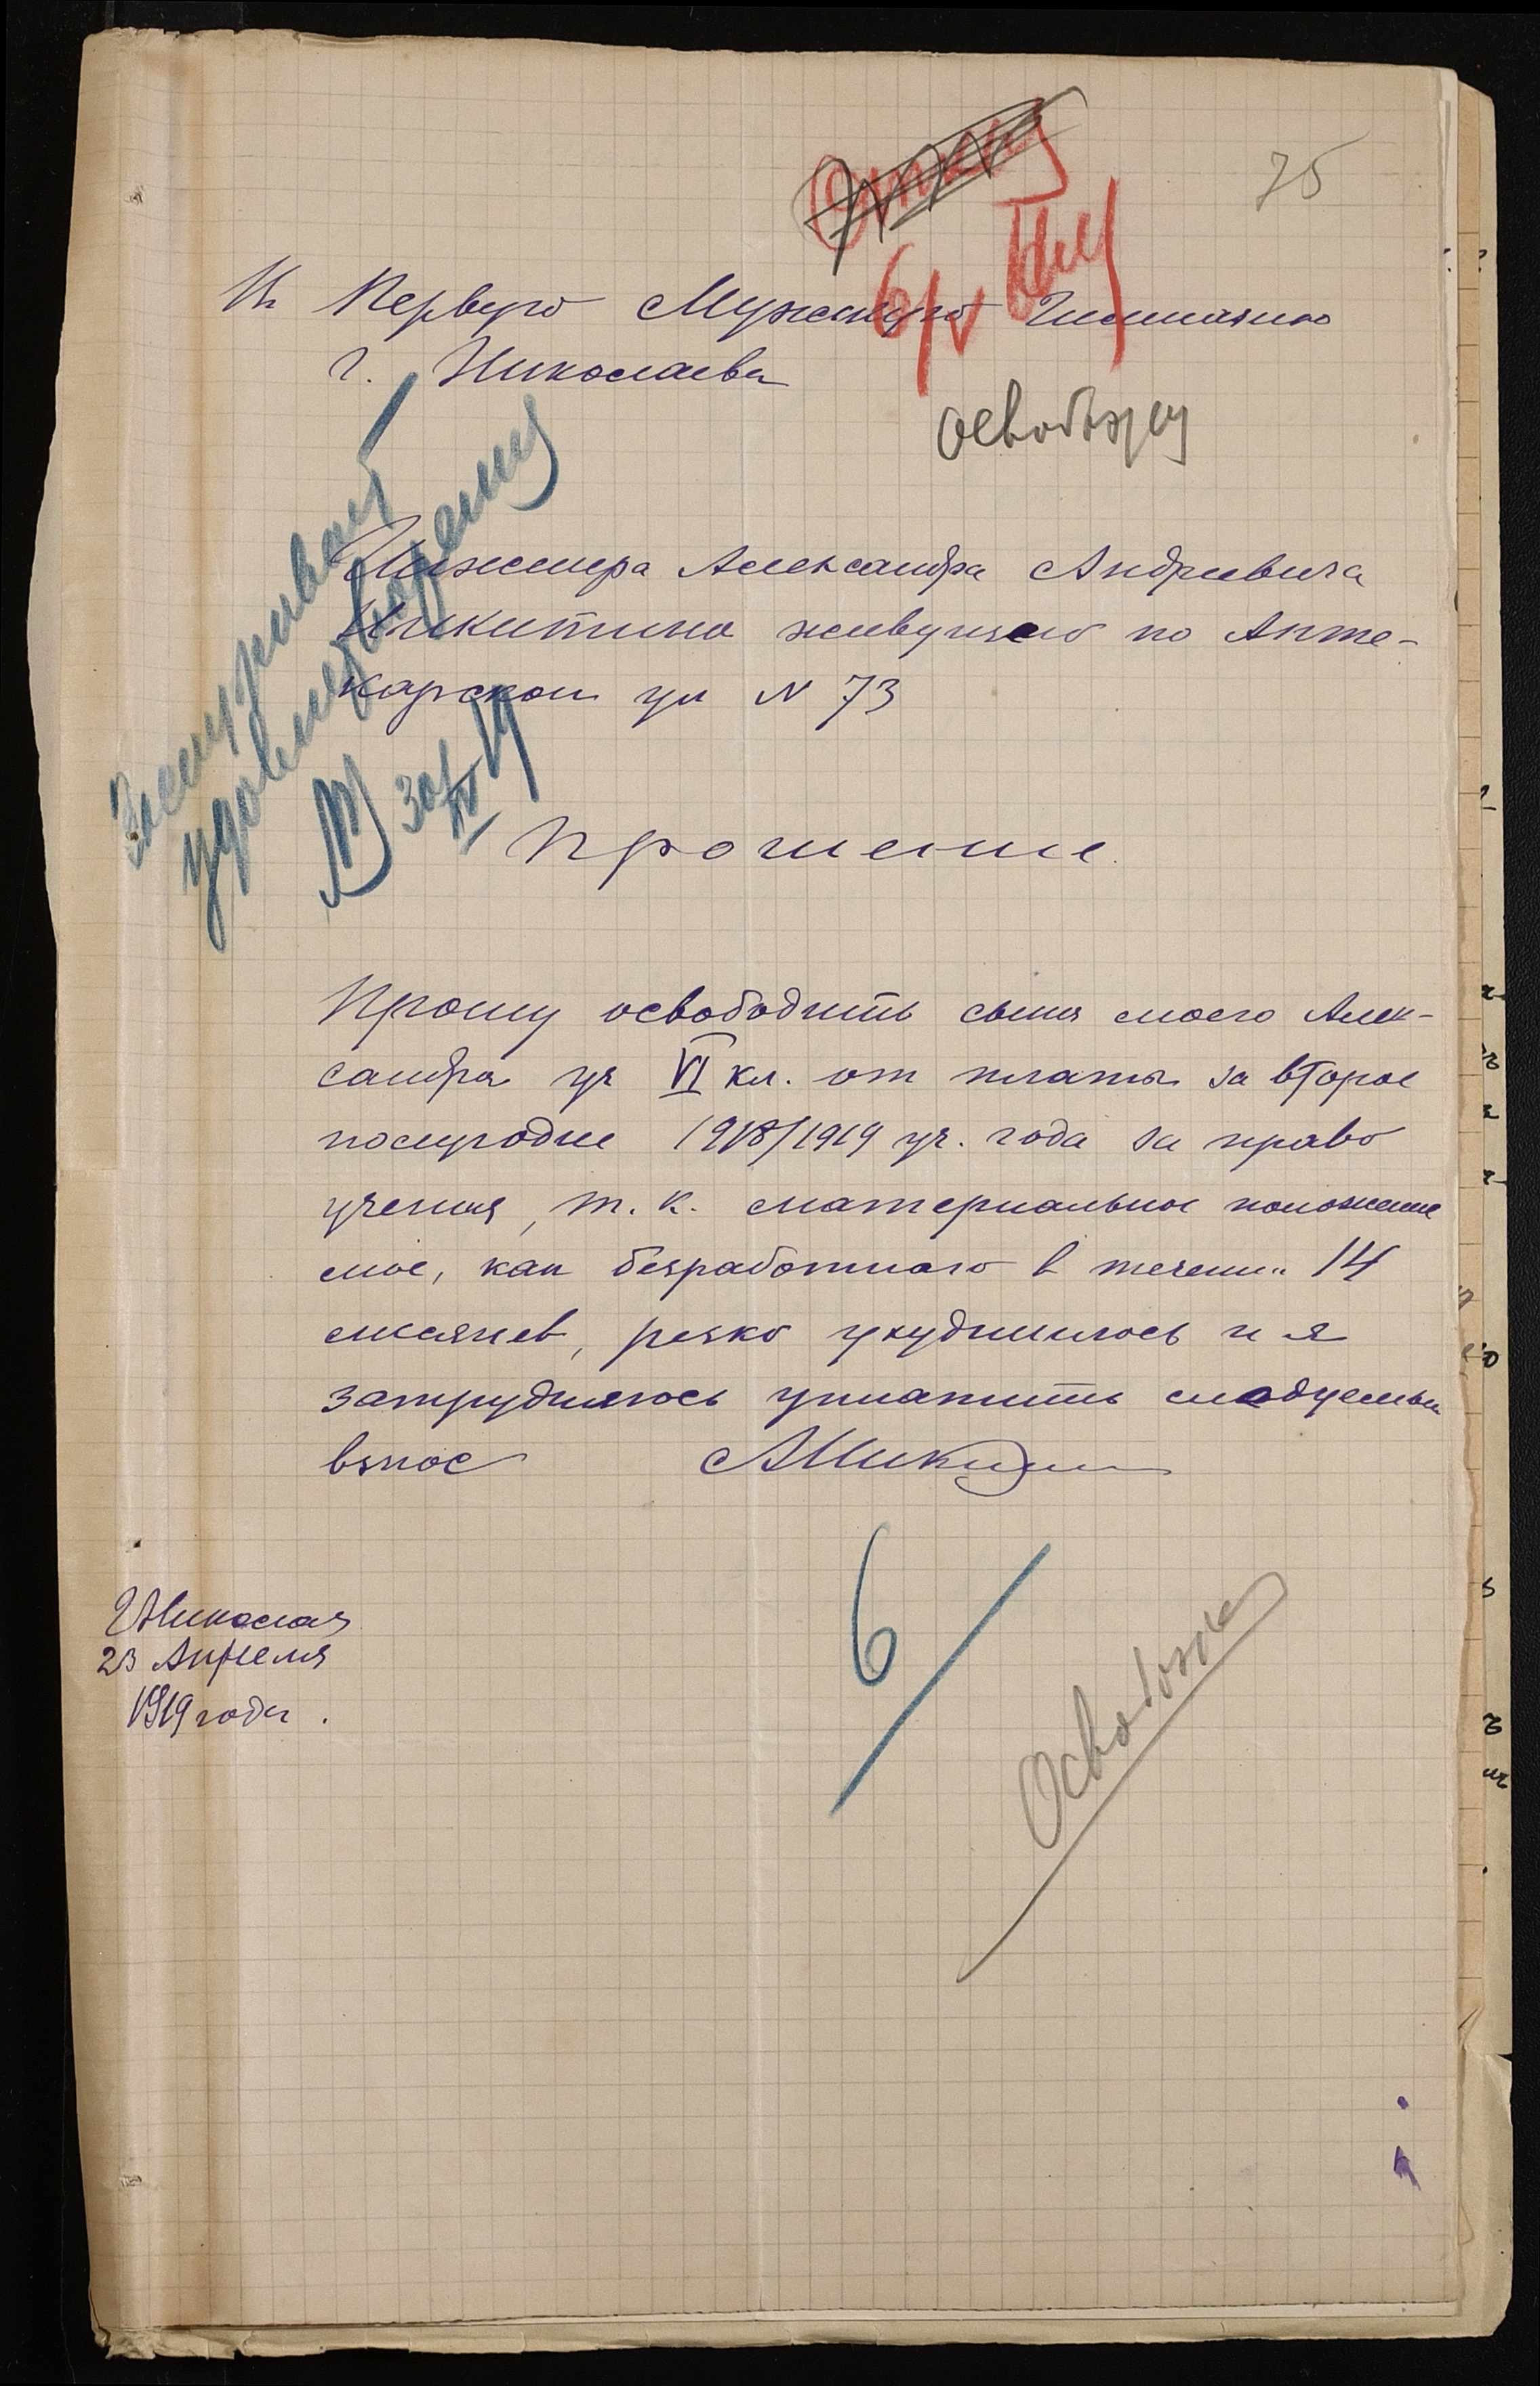 75
Отказ
6/V
В Первую Мужскую Гимназию
г. Николаева
освобожд
Заслуживает
удовлетворения
30/IV 19
Инженера Александра Андреевича
Никитина живущего по Апте-
карской ул N 73
Прошение.
Прошу освободить сына моего Алек-
сандра уч VI кл. от платы за второе
полугодие 1918/1919 уч. года за право
учения, т. к. материальное положение
мое, как безработного в течении 14
месяцев, резко ухудшилось и я
затрудняюсь уплатить следуемый
взнос АНикитин
6
Освобожд
Г Николаев
23 Апреля
1919 года.